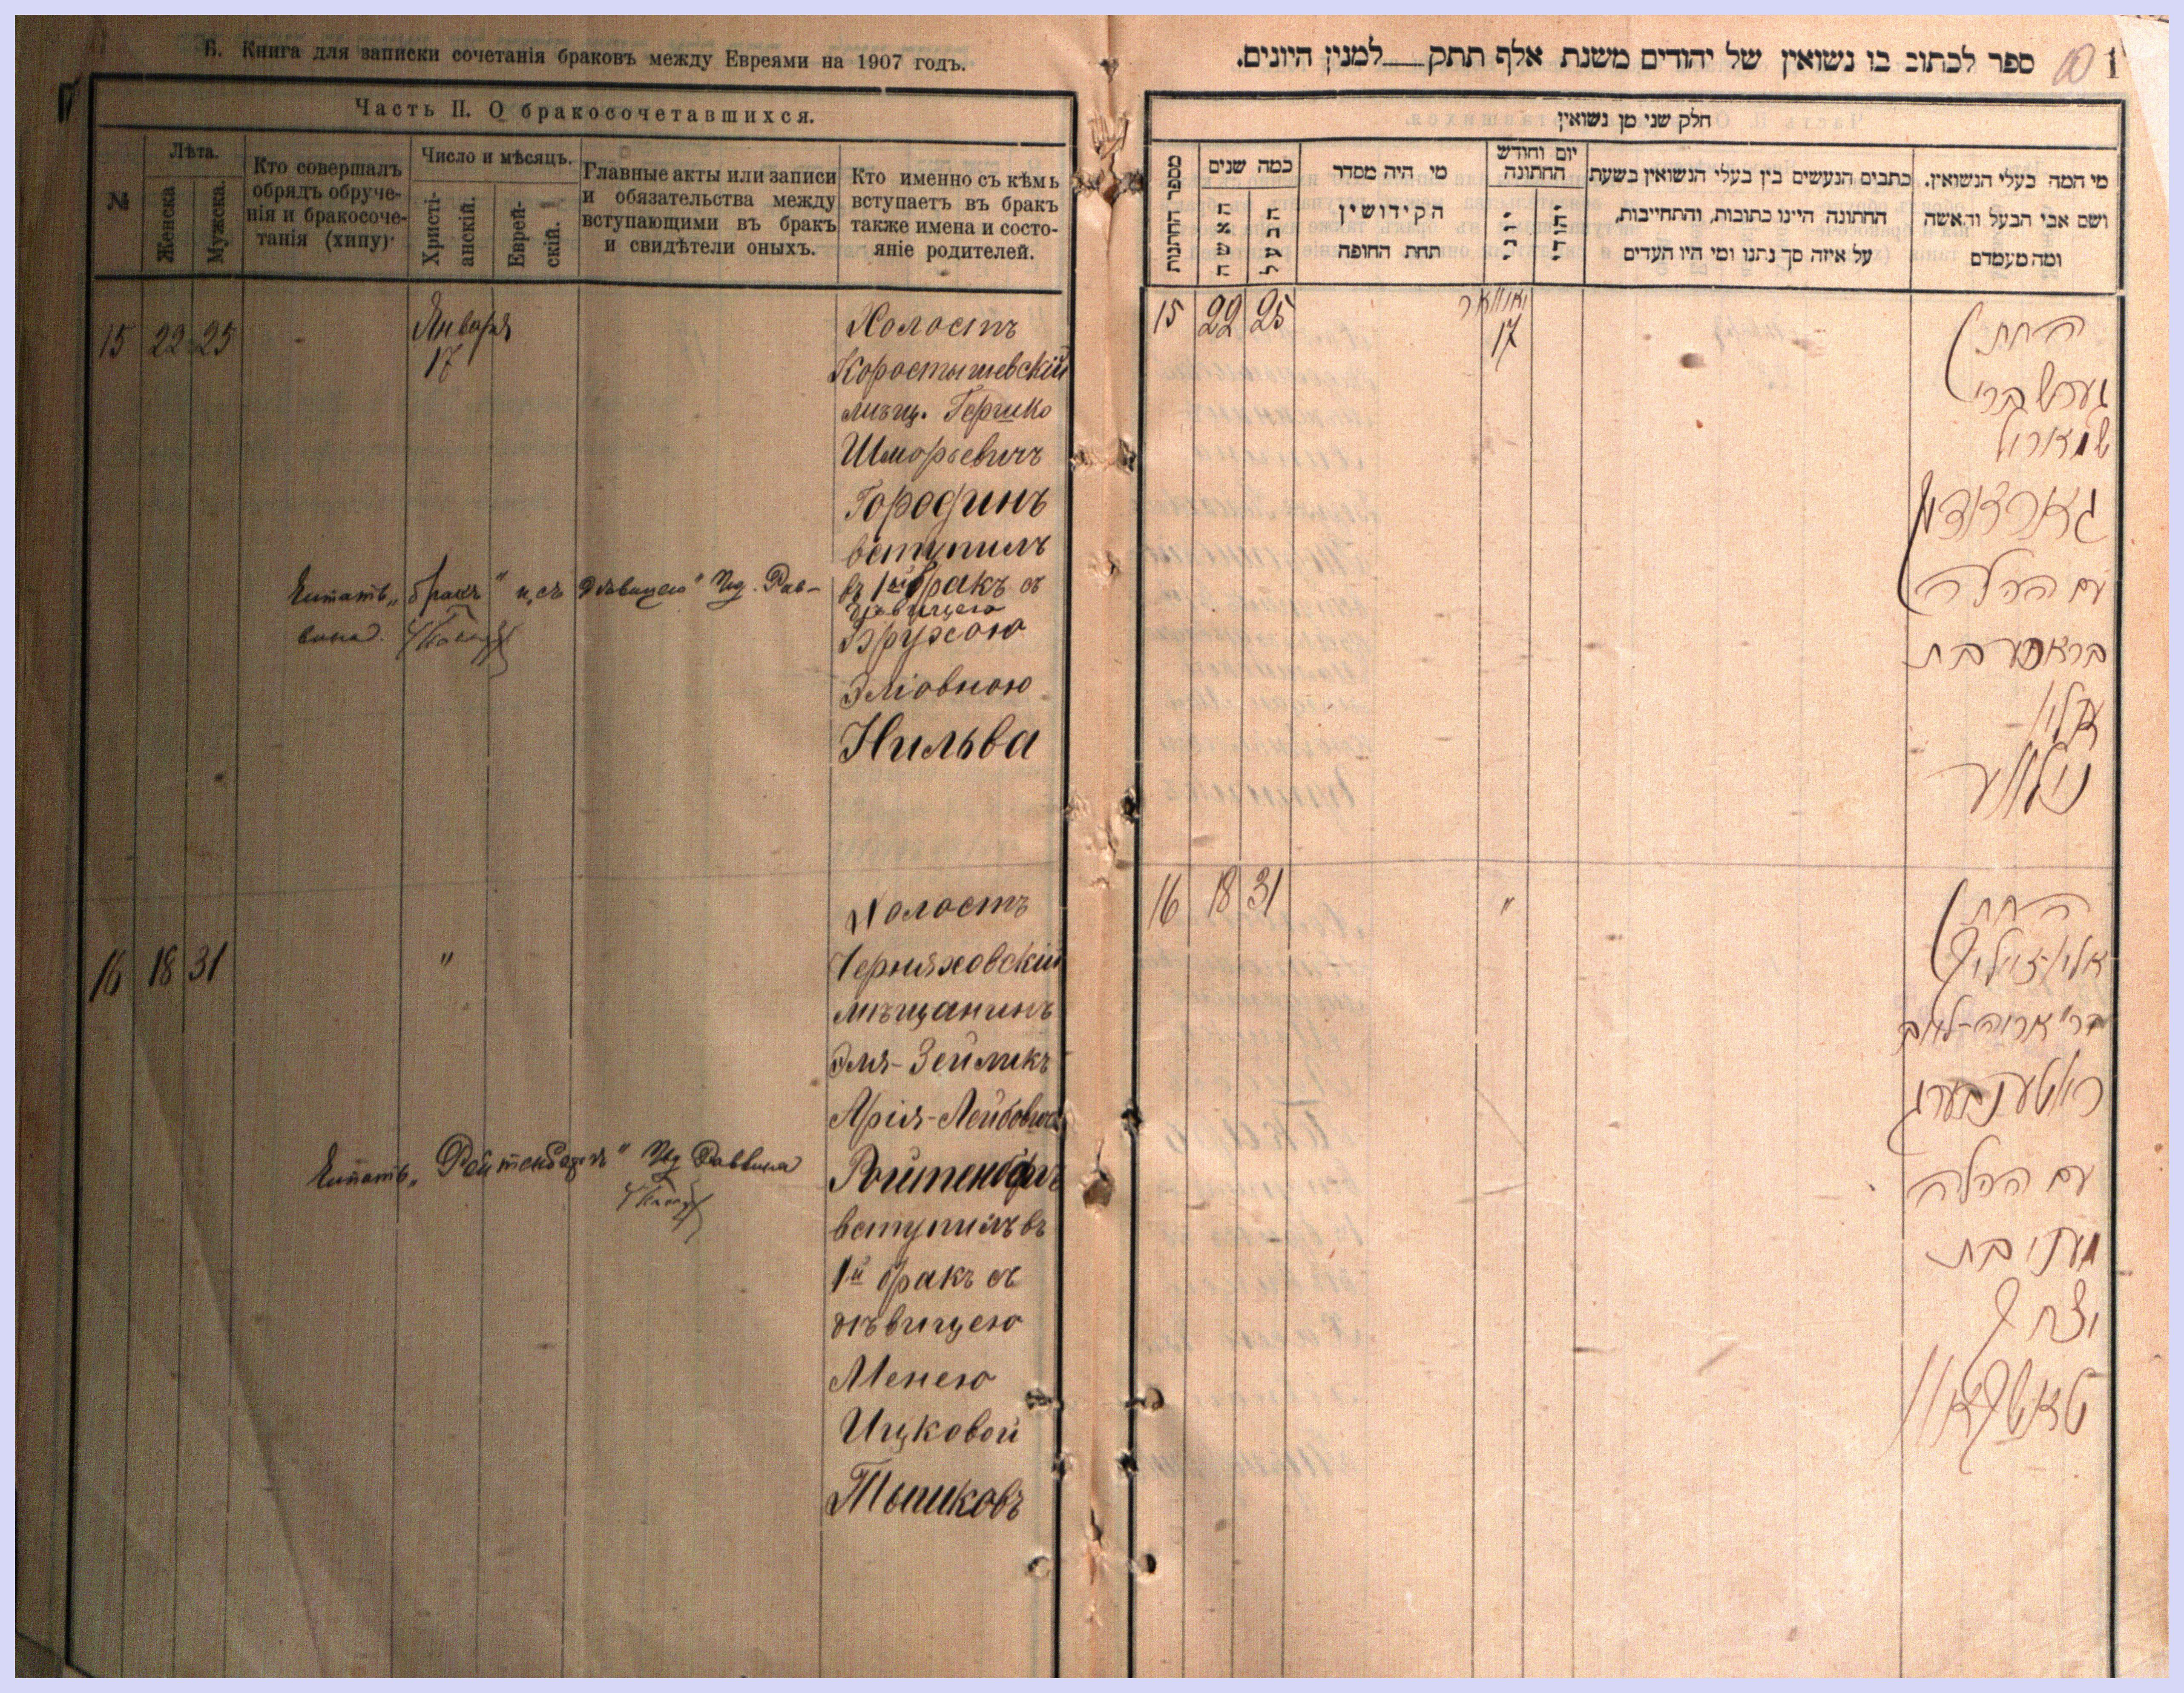 Б. Книга для записки сочетанія браковъ между Евреями на 1907 годъ.
Часть II. О бракосочетавшихся.
№
Лѣта.
Женска
Мужска.
Кто совершалъ
обрядъ обруче-
нія и бракосоче-
танія (хипу)·
Число и мѣсяцъ.
Христі-
анскій.
Еврей-
скій.
Главные акты или записи
и обязательства между
вступающими въ бракъ
и свидѣтели оныхъ.
Кто именно съ кѣмъ
вступаетъ въ бракъ
также имена и состо-
яніе родителей.
15 22 25 - Января
17
Холостъ
Коростышевскій
мѣщ. Гершко
Шморьевичъ
Городинъ
вступилъ
въ 1ый бракъ съ
дѣвицею
Брухою
Эліовною
Нильва
Читать „бракъ" и „съ дѣвицею" Ид. Рав-
вина.
16 18 31 "
Холостъ
Черняховскій
мѣщанинъ
Эля-Зейликъ
Арія-Лейбовичъ
Ройтенбергъ
вступилъ въ
1й бракъ съ
дѣвицею
Менею
Ицковой
Тышковъ
Читать „Ройтенбергъ" Ид Раввина
ספר לכתוב בו נשואין של יהודים משנת אלף תתק___למנין היונים.
10
1
חלק שני מן נשואין
מספר החתונות
כמה שנים
האשה
הבעל
מי היה מסדר
הקידושין
תחת החופה
יום וחודש
החתונה
יוני
יהודי
כתבים הנעשים בין בעלי הנשואין בשעת
החתונה היינו כתובות, והתחייבות,
על איזה סך נתנו ומי היו העדים
מי המה בעלי הנשואין.
ושם אבי הבעל והאשה
ומה מעמדם
15 22 25 יאנוואר
17
החת׳
גערש ברי׳
עם הכלה
בת
16 18 31 "
החת׳
ברי׳ אריה-לייב
ראטענבערג
עם הכלה
מעני בת
יצחק